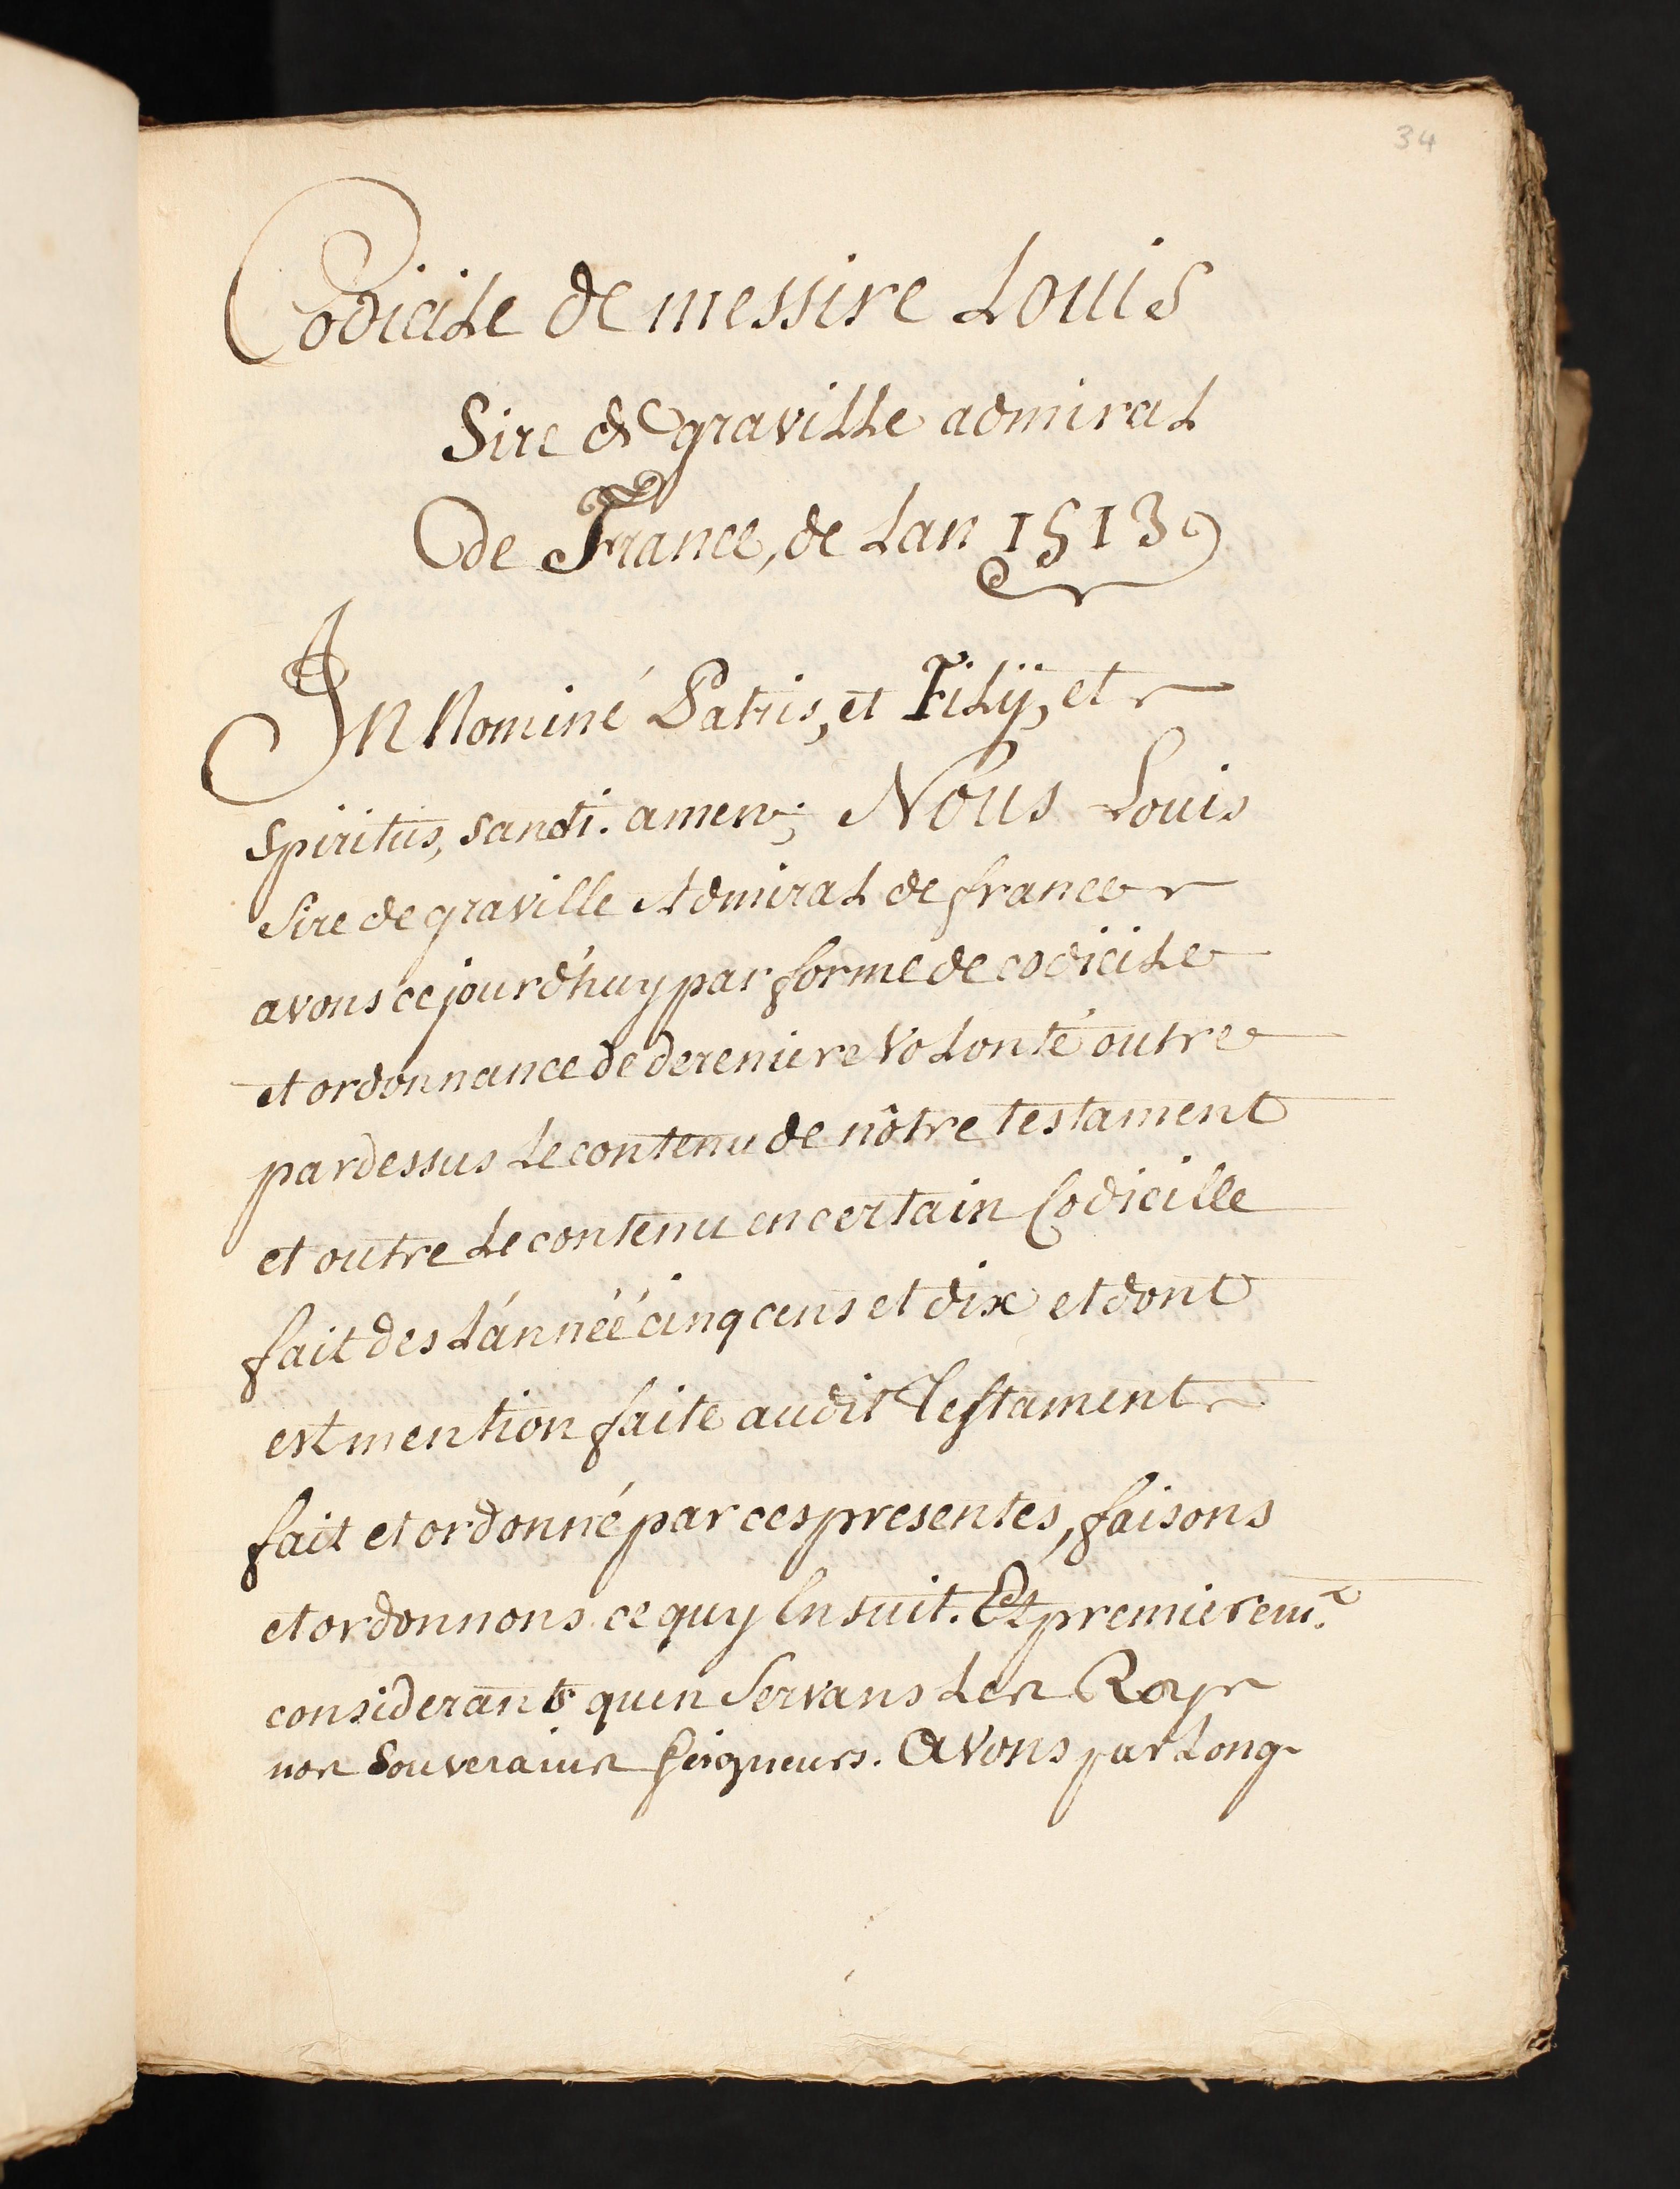 34
Codicile de messire Louis
Sire de graville admiral
de France, de Lan 1513
In Nominé Patris, et Filij, et
Spiritus, sancti. amen; Nous Louis
Sire de graville Admiral de france
avons ce jourd'huy par forme de codicile
et ordonnance de dereniere volonté outre
par dessus le contenu de nôtre testament
et outre le contenu en certain Codicille
fait des l'annéé cinq cens et dix et dont
est mention faite audit Testament
fait et ordonné par ces presentes, faisons
et ordonnons ce quy Ensuit. Et premierem.t
considerants quen Servans les Roys
nos Souverains seigneurs. Avons par Long